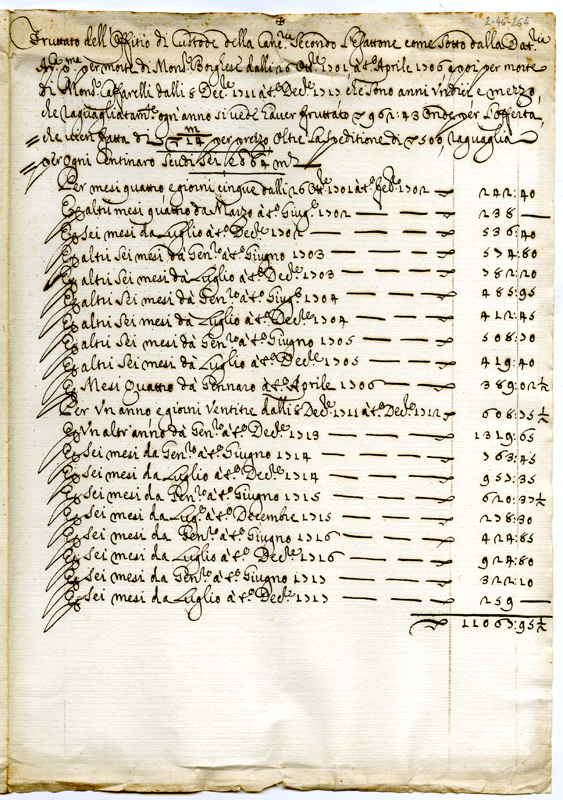 2-46-264
Fruttato dell'Offitio di Custode della Canc.ria Secondo l'esattone come sotto dalla Dat.ria
per morte di Mons.r Borghese dalli 26 Ott.re 1701 à t.o Aprile 1706 e poi per morte
di Mons.r Caffarelli dalli 8 Dec.re 1711 à t.o Dec.re 1717 che sono anni Undici e mezzo,
che raguagliatam.te ogni anno si vede haver fruttato 962:43 Onde per l'offerta,
che vien fatta di m/14 per prezzo Oltre la speditione di 500, raguaglia
per ogni Centinaro Scudi Sei e 64 m.ta
Per mesi quattro e giorni cinque dalli 26 Ott.re 1701 à t.o feb.o 1702 — 242:40
E p altri mesi quattro da Marzo à t.o Giug.o 1702 — 238 —
E p Sei mesi da Luglio à t.o Dec.re 1702 — 536:40
E p altri Sei mesi da Gen.ro à t.o Giugno 1703 — 574:80
E p altri Sei mesi da Luglio à t.o Dec.re 1703 — 782:20
E p altri Sei mesi da Gen.ro à t.o Giug.o 1704 — 485:95
E p altri Sei mesi da Luglio à t.o Dec.re 1704 — 412:45
E p altri Sei mesi da Gen.ro à t.o Giugno 1705 — 508:70
E p altri Sei mesi da Luglio à t.o Dec.re 1705 — 419:40
E p Mesi Quattro da Gennaro à t.o Aprile 1706 — 389:02½
Per Un anno e giorni Ventitre dalli 8 Dec.re 1711 à t.o Dec.re 1712 — 608:75½
E p Un altr'anno da Gen.ro à t.o Dec.re 1713 — 1319:65
E p Sei mesi da Gen.ro à t.o Giugno 1714 — 763:45
E p Sei mesi da Luglio à t.o Dec.re 1714 — 957:35
E p Sei mesi da Gen.ro à t.o Giugno 1715 — 620:37½
E p Sei mesi da Lug.o à t.o Decembre 1715 — 278:30
E p Sei mesi da Gen.ro à t.o Giugno 1716 — 424:85
E p Sei mesi da Luglio à t.o Dec.re 1716 — 924:80
E p Sei mesi da Gen.ro à t.o Giugno 1717 — 322:10
E p Sei mesi da Luglio à t.o Dec.re 1717 — 259 —
11067:95½